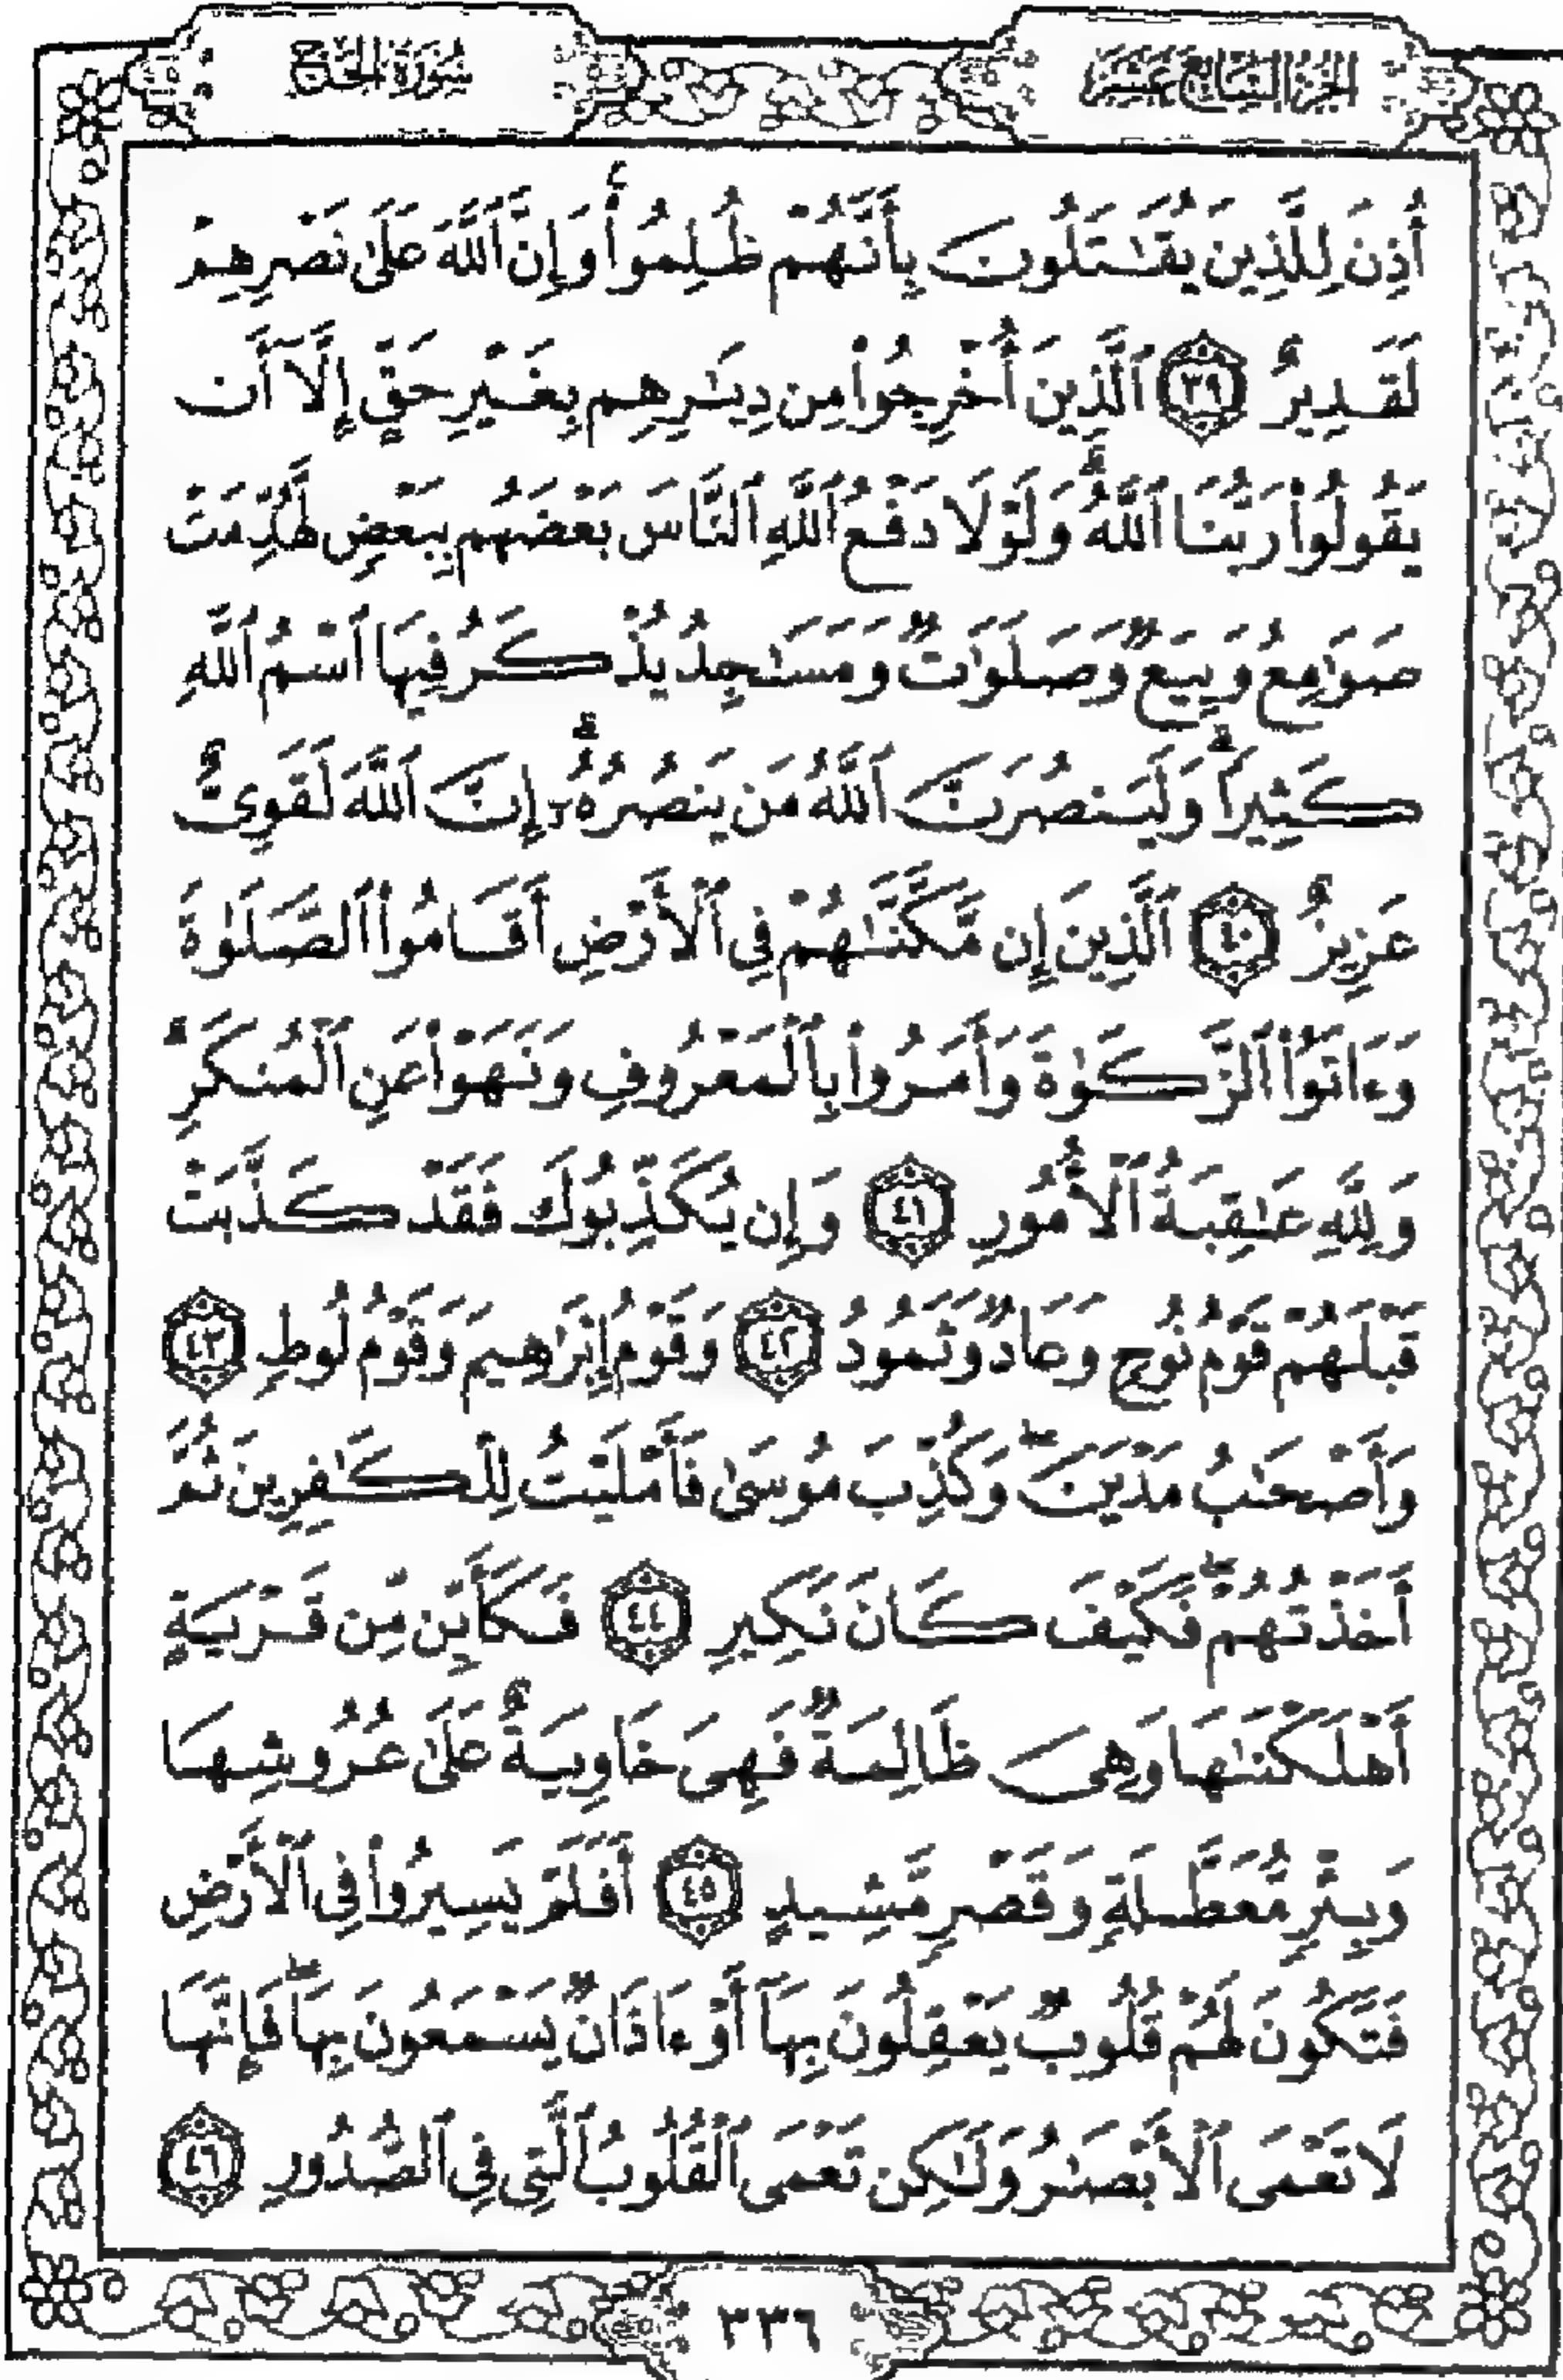 الجزء السابع عشر
سورة الحج
أُذِنَ لِلَّذِينَ يُقَٰتَلُونَ بِأَنَّهُمْ ظُلِمُوا۟ ۚ وَإِنَّ ٱللَّهَ عَلَىٰ نَصْرِهِمْ
لَقَدِيرٌ ٣٩ ٱلَّذِينَ أُخْرِجُوا۟ مِن دِيَٰرِهِم بِغَيْرِ حَقٍّ إِلَّآ أَن
يَقُولُوا۟ رَبُّنَا ٱللَّهُ ۗ وَلَوْلَا دَفْعُ ٱللَّهِ ٱلنَّاسَ بَعْضَهُم بِبَعْضٍ لَّهُدِّمَتْ
صَوَٰمِعُ وَبِيَعٌ وَصَلَوَٰتٌ وَمَسَٰجِدُ يُذْكَرُ فِيهَا ٱسْمُ ٱللَّهِ
كَثِيرًا ۗ وَلَيَنصُرَنَّ ٱللَّهُ مَن يَنصُرُهُۥٓ ۗ إِنَّ ٱللَّهَ لَقَوِىٌّ
عَزِيزٌ ٤٠ ٱلَّذِينَ إِن مَّكَّنَّٰهُمْ فِى ٱلْأَرْضِ أَقَامُوا۟ ٱلصَّلَوٰةَ
وَءَاتَوُا۟ ٱلزَّكَوٰةَ وَأَمَرُوا۟ بِٱلْمَعْرُوفِ وَنَهَوْا۟ عَنِ ٱلْمُنكَرِ ۗ
وَلِلَّهِ عَٰقِبَةُ ٱلْأُمُورِ ٤١ وَإِن يُكَذِّبُوكَ فَقَدْ كَذَّبَتْ
قَبْلَهُمْ قَوْمُ نُوحٍ وَعَادٌ وَثَمُودُ ٤٢ وَقَوْمُ إِبْرَٰهِيمَ وَقَوْمُ لُوطٍ ٤٣
وَأَصْحَٰبُ مَدْيَنَ ۖ وَكُذِّبَ مُوسَىٰ فَأَمْلَيْتُ لِلْكَٰفِرِينَ ثُمَّ
أَخَذْتُهُمْ ۖ فَكَيْفَ كَانَ نَكِيرِ ٤٤ فَكَأَيِّن مِّن قَرْيَةٍ
أَهْلَكْنَٰهَا وَهِىَ ظَالِمَةٌ فَهِىَ خَاوِيَةٌ عَلَىٰ عُرُوشِهَا
وَبِئْرٍ مُّعَطَّلَةٍ وَقَصْرٍ مَّشِيدٍ ٤٥ أَفَلَمْ يَسِيرُوا۟ فِى ٱلْأَرْضِ
فَتَكُونَ لَهُمْ قُلُوبٌ يَعْقِلُونَ بِهَآ أَوْ ءَاذَانٌ يَسْمَعُونَ بِهَا ۖ فَإِنَّهَا
لَا تَعْمَى ٱلْأَبْصَٰرُ وَلَٰكِن تَعْمَى ٱلْقُلُوبُ ٱلَّتِى فِى ٱلصُّدُورِ ٤٦
٣٣٦